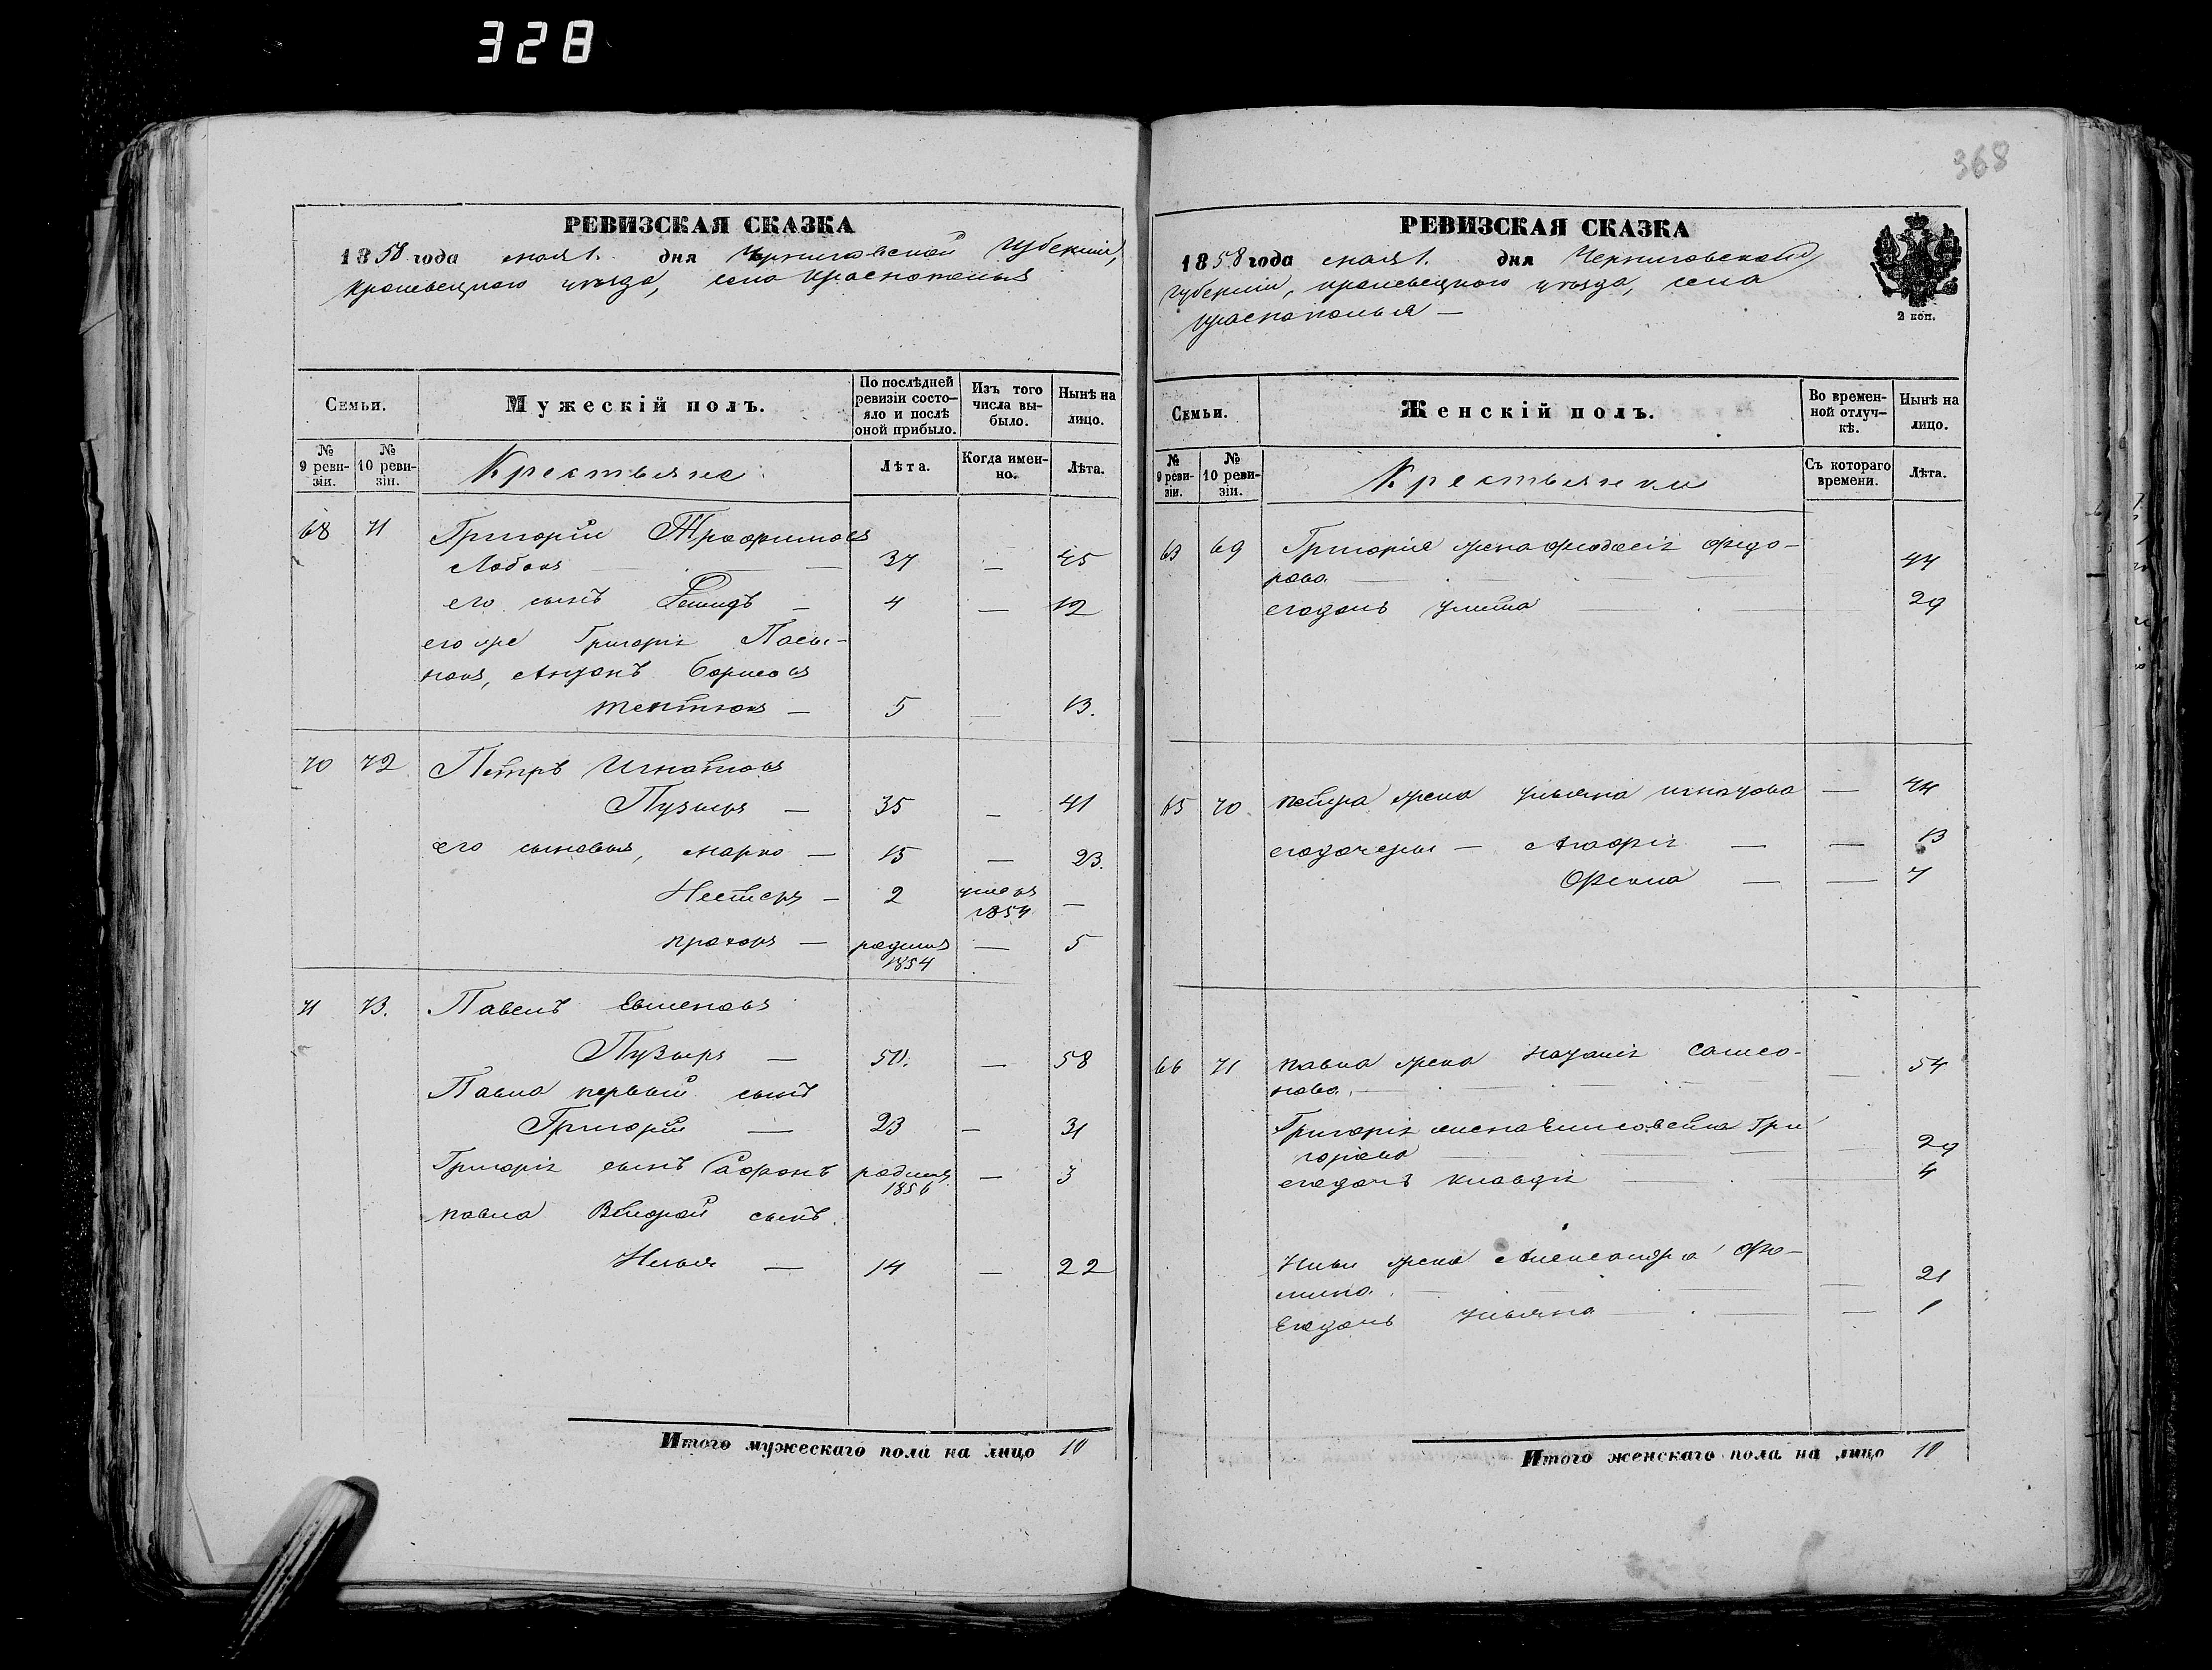 328
РЕВИЗСКАЯ СКАЗКА
1858 года мая 1. дня Черниговской Губернии,
Кролевецкого уезда, села Краснополья
Семьи.
Мужескій полъ.
По послѣдней ревизіи состояло и послѣ оной прибыло.
Изъ того числа выбыло.
Нынѣ на лицо.
№ 9 ревизіи.
№ 10 ревизіи.
Крестьяне
Лѣта.
Когда именно.
Лѣта.
68 71 Григорій Трофимовъ
Лобокъ — 37 — 45
его сынъ Демидъ — 4 — 12
его же Григорія Пасы-
нокъ, Антонъ Борисовъ
— 5 — 13.
70 72 Петръ Игнатовъ
Пузырь — 35 — 41
его сыновья, Марко — 15 — 23.
Нестеръ — 2 умеръ 1854 —
Прохоръ — родился 1854 — 5
71 73. Павелъ
Пузырь — 50. — 58
Павла первый сынъ
Григорій — 23 — 31
Григорія сынъ Сафронъ родился 1856 — 3
Павла Второй сынъ
Илья — 14 — 22
Итого мужескаго пола на лицо 10
368
РЕВИЗСКАЯ СКАЗКА
1858 года мая 1. дня Черниговской
Губернии, Кролевецкого уезда, села
Краснополья —
2 коп.
Семьи.
Женскій полъ.
Во временной отлучкѣ.
Нынѣ на лицо.
№ 9 ревизіи.
№ 10 ревизіи.
Крестьянки
Съ котораго времени.
Лѣта.
63 69 Григорія жена Феодосія Федо-
рова 44
его дочь Улита 29
65 70 Петра жена Ульяна Игнатова — 44
его дочери — Агафія — — 13
Фекла — — 7
66 71 Павла жена Наталія Самсо-
нова. — 54
Григорія жена Елисавета Гри
горіева 29
его дочь Клавдія 4
Ильи жена Александра Фо-
мина. — 21
Его дочь Ульяна — 1
Итого женскаго пола на лицо 10